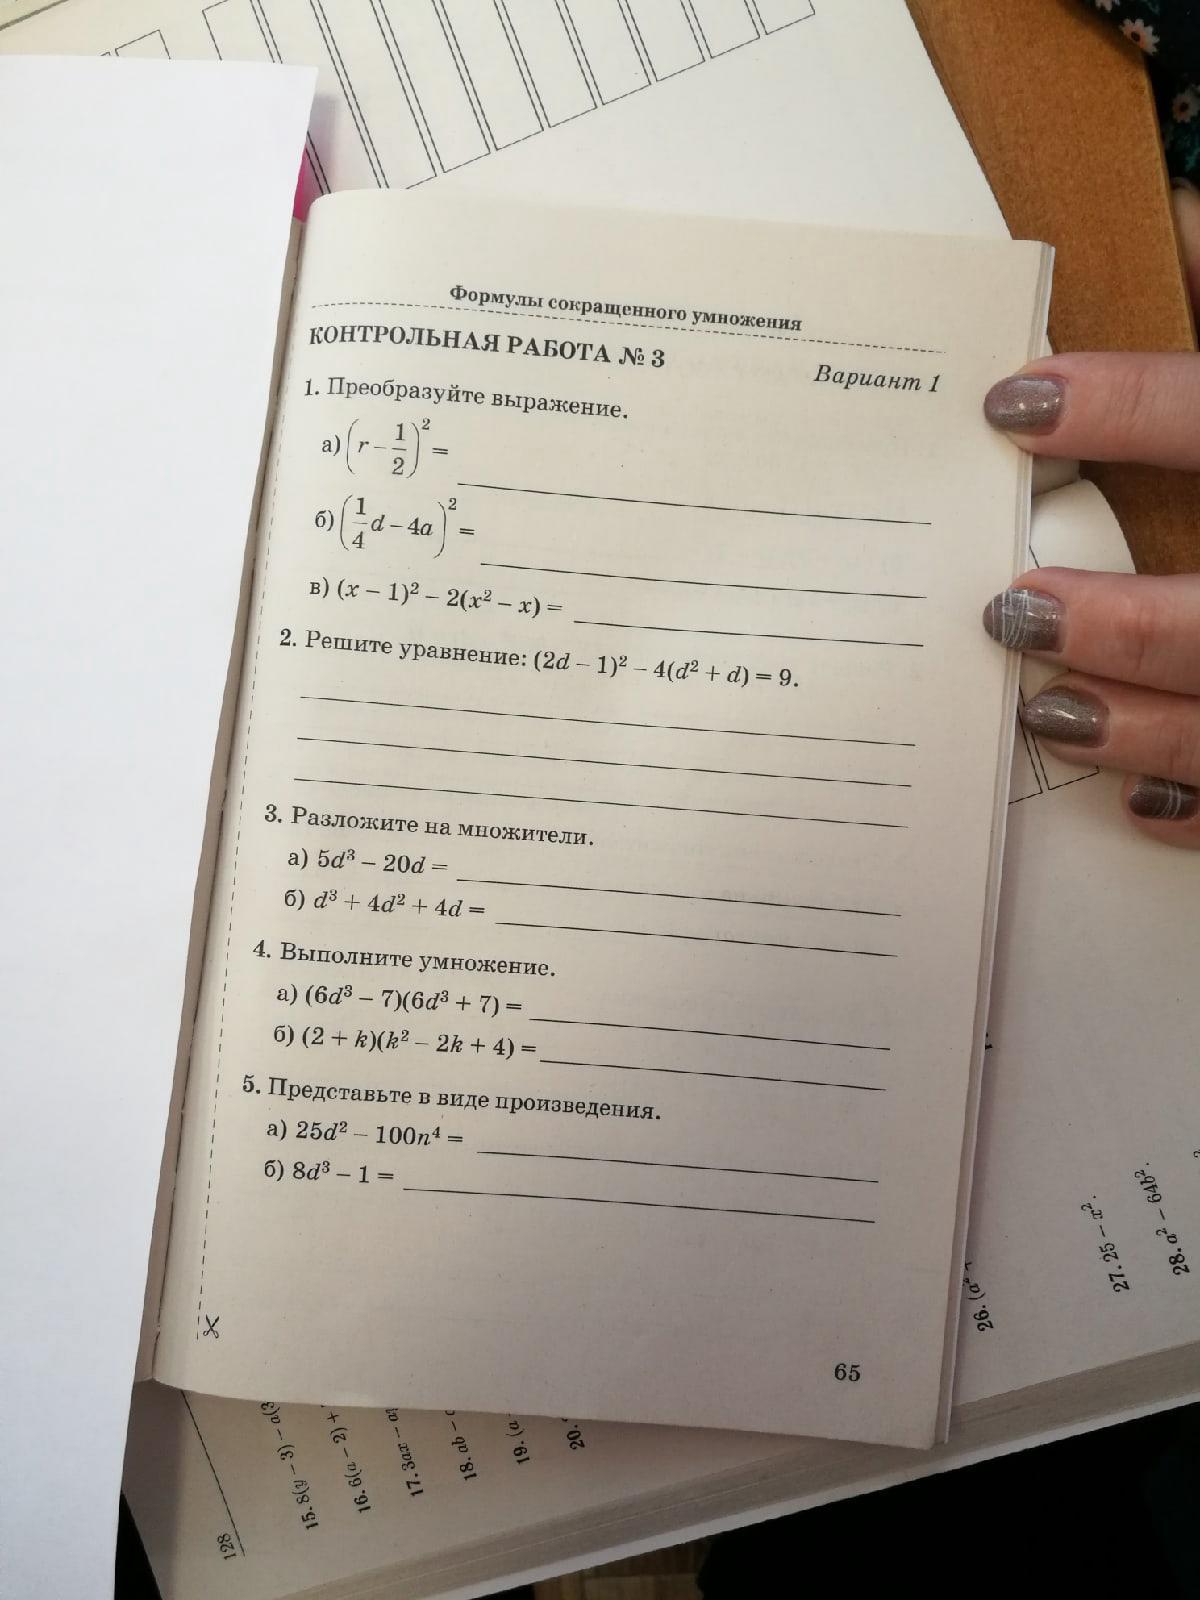 Формулы сокращенного умножения
КОНТРОЛЬНАЯ РАБОТА № 3
Вариант 1
1. Преобразуйте выражение.
а) (r – 1/2)² =
б) (1/4 d – 4a)² =
в) (x – 1)² – 2(x² – x) =
2. Решите уравнение: (2d – 1)² – 4(d² + d) = 9.
3. Разложите на множители.
а) 5d³ – 20d =
б) d³ + 4d² + 4d =
4. Выполните умножение.
а) (6d³ – 7)(6d³ + 7) =
б) (2 + k)(k² – 2k + 4) =
5. Представьте в виде произведения.
а) 25d² – 100n⁴ =
б) 8d³ – 1 =
65
128
15. 8(y – 3) – a(3
16. 6(a – 2) +
17. 3ax – a
18. ab –
19. (a
20.
26. (a² +
27. 25 – x².
28. a² – 64b².